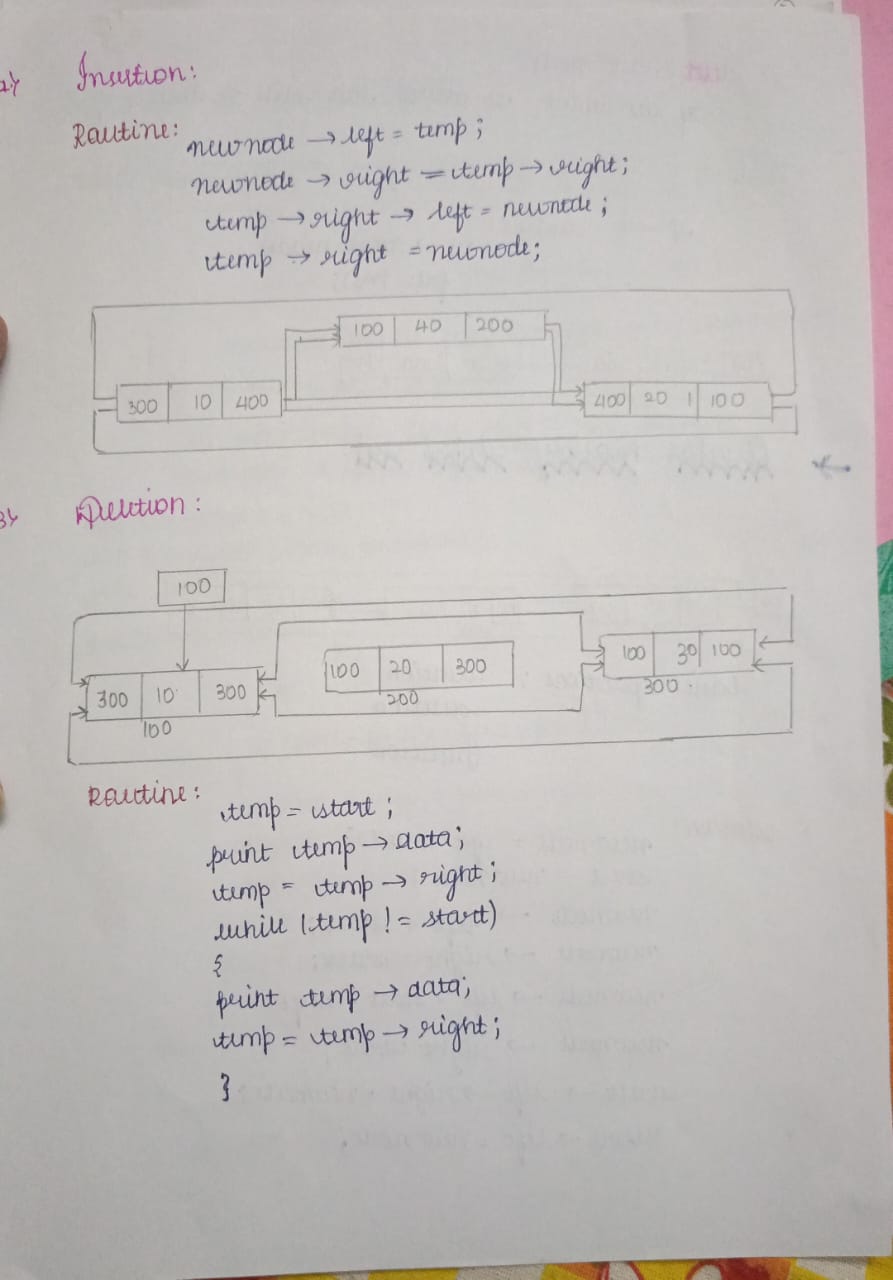 2)
Insertion:
Routine:
newnode → left = temp;
newnode → right = temp → right;
temp → right → left = newnode;
temp → right = newnode;
100 40 200
300 10 400
400 20 100
3)
Deletion:
100
100 20 300
200
100 30 100
300
300 10 300
100
Routine:
temp = start;
print temp → data;
temp = temp → right;
while (temp != start)
{
print temp → data;
temp = temp → right;
}